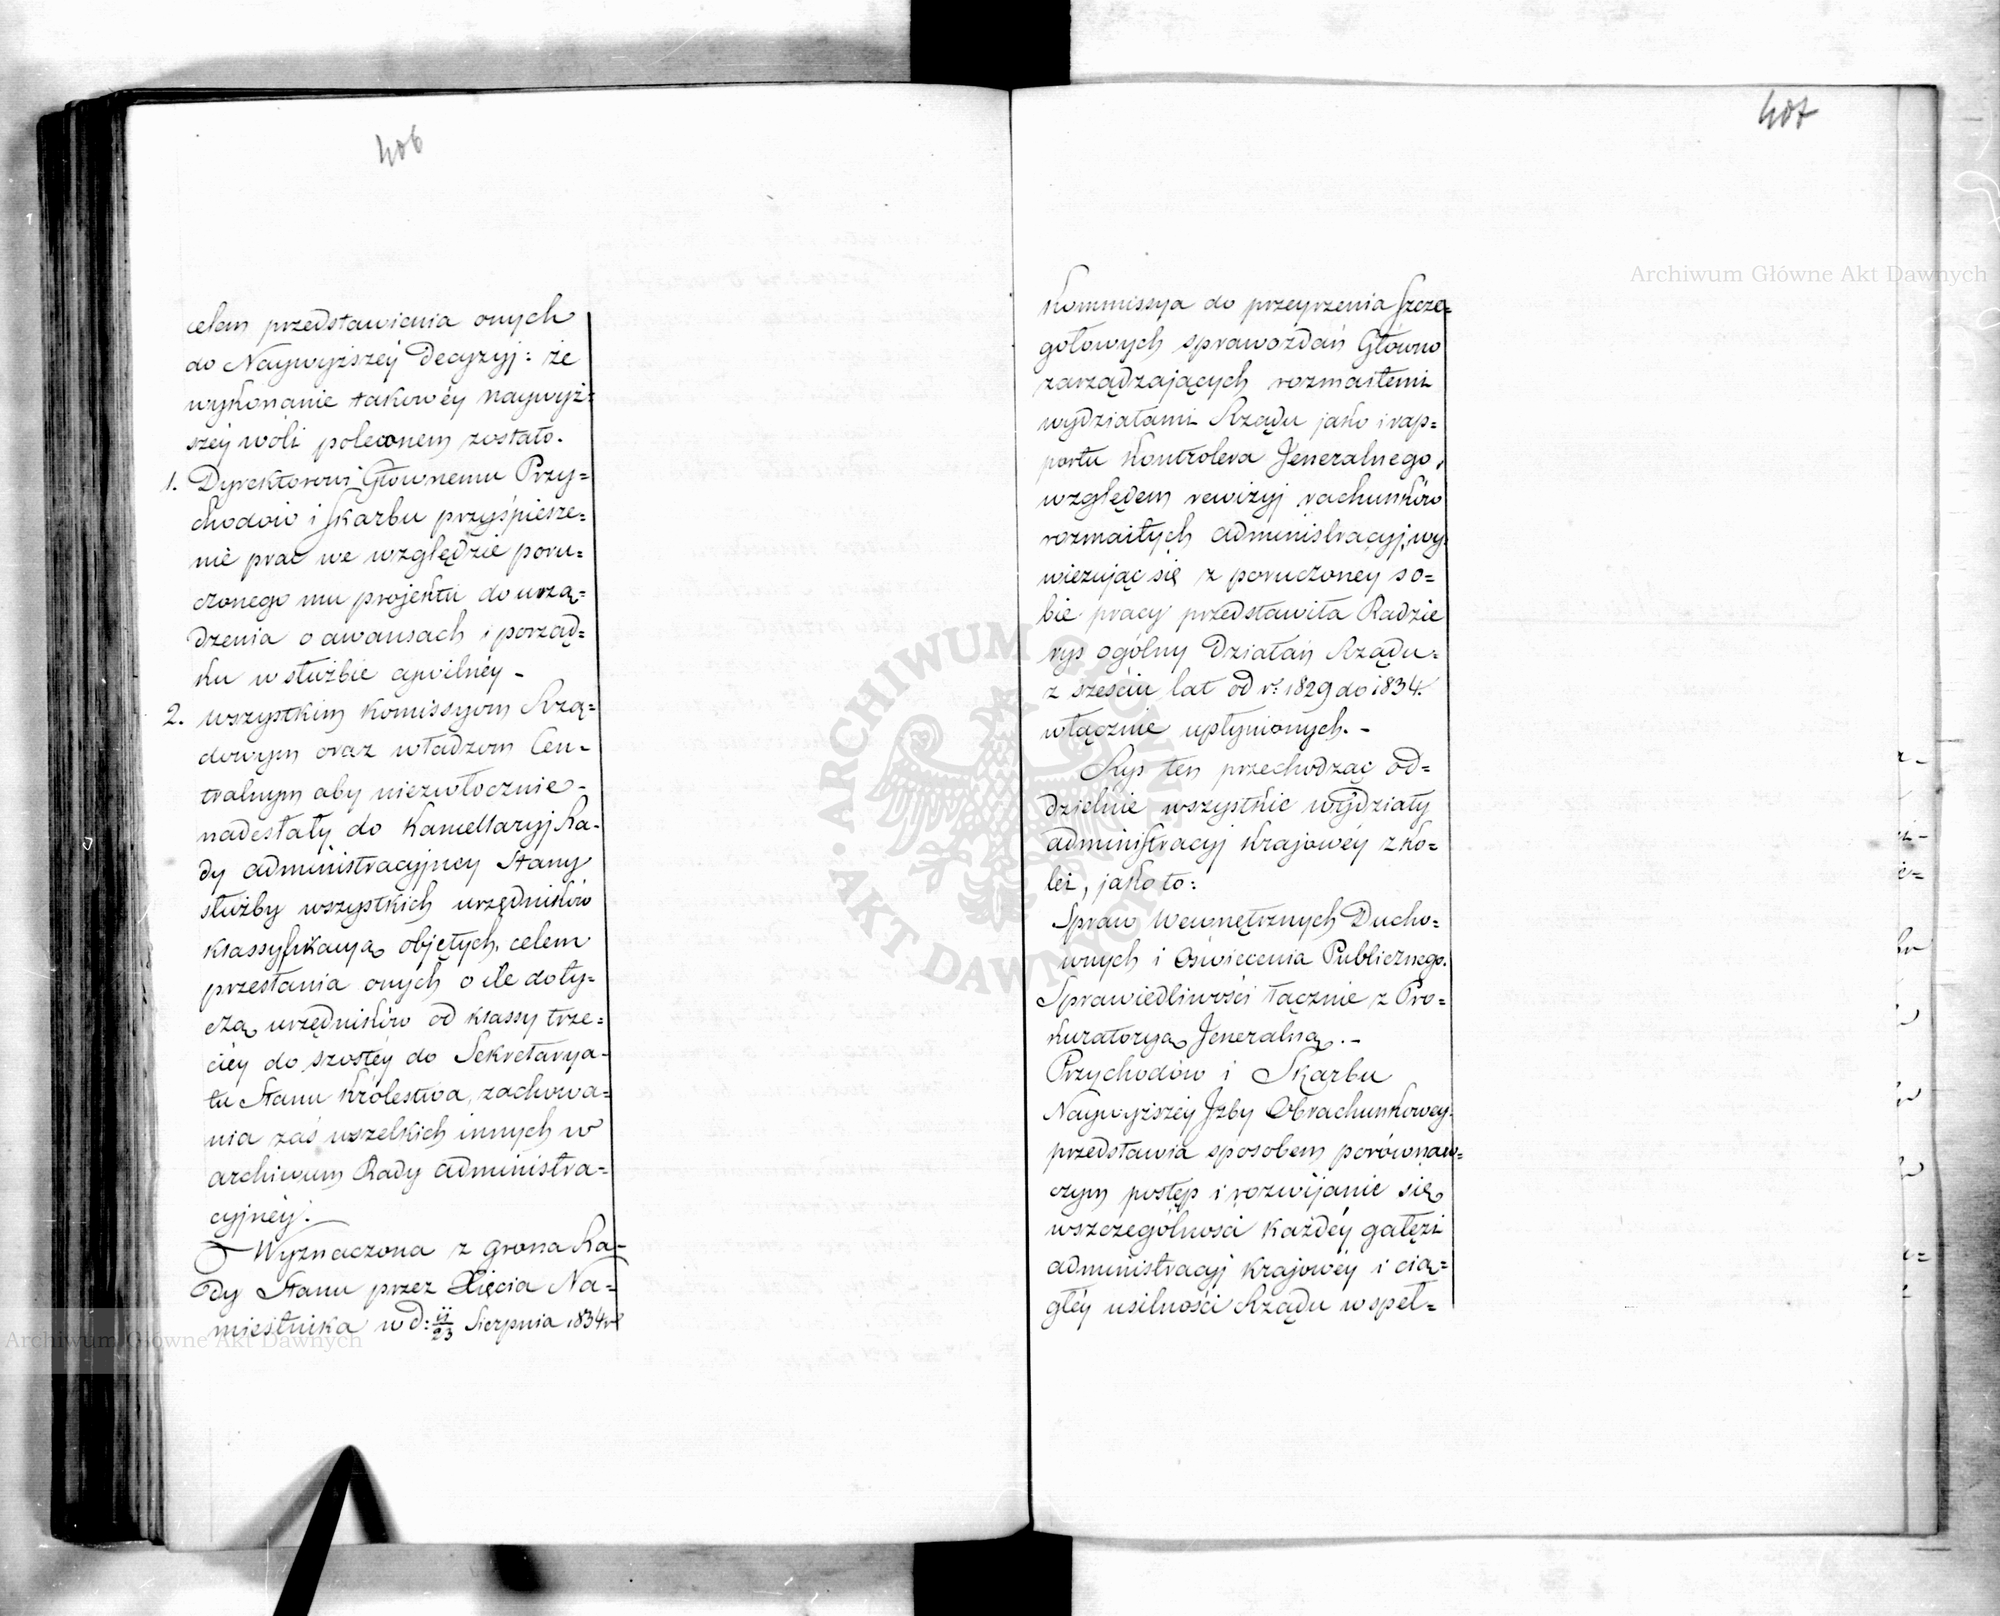 406
celem przedstawienia onych
do Naywyższéy Decyzyj: że
wykonanie takowéy naywyż=
széy woli poleconem zostało.
1. Dyrektorowi Głównemu Przy=
chodów i Skarbu przyśpiesze=
nie prac we względzie poru=
czonego mu projektu do urzą=
dzenia o awansach i porząd=
ku w służbie cywilnéy -
2. wszystkim Komissyom Rzą=
dowym oraz władzom Cen=
tralnym aby niezwłocznie -
nadesłały do Kancellaryj Ra=
dy administracyjney Stany
służby wszystkich urzędników
klassyfikacyą objętych, celem
przesłania onych o ile doty=
czą urzędników od klassy trze=
ciéy do szóstéy do Sekretarya=
tu Stanu Królestwa, zachowa=
nia zaś wszelkich innych w
archiwum Rady administra=
cyjnéy.
Wyznaczona z grona Ra=
dy Stanu przez Xięcia Na=
miestnika w d: 11/23 Sierpnia 1834 r
407
Kommissya do przeyrzenia szcze=
gółowych sprawozdań Główno
zarządzających rozmaitemi
wydziałami Rządu jako i rap=
portu Kontrolera Jeneralnego,
względem rewizyj rachunków
rozmaitych administracyj, wy=
wiezując się z poruczoney so=
bie pracy przedstawiła Radzie
rys ogólny Działań Rządu=
z sześciu lat od r. 1829 do 1834.
włącznie upłynionych. -
Rys ten przechodząc od=
dzielnie wszystkie wydziały
administracyj Krajowéy z ko=
lei, jako to:
Spraw Wewnętrznych Ducho=
wnych i Oświecenia Publicznego.
Sprawiedliwości łącznie z Pro=
kuratoryą Jeneralną. -
Przychodów i Skarbu
Naywyższéy Jzby Obrachunkowey
przedstawia sposobem porównaw=
czym postęp i rozwijanie się
wszczególności każdéy gałęzi
administracyj krajowéy i cią=
głéy usilności Rządu w speł=
Archiwum Główne Akt Dawnych
Archiwum Główne Akt Dawnych
ARCHIWUM GŁÓWNE AKT DAWNYCH